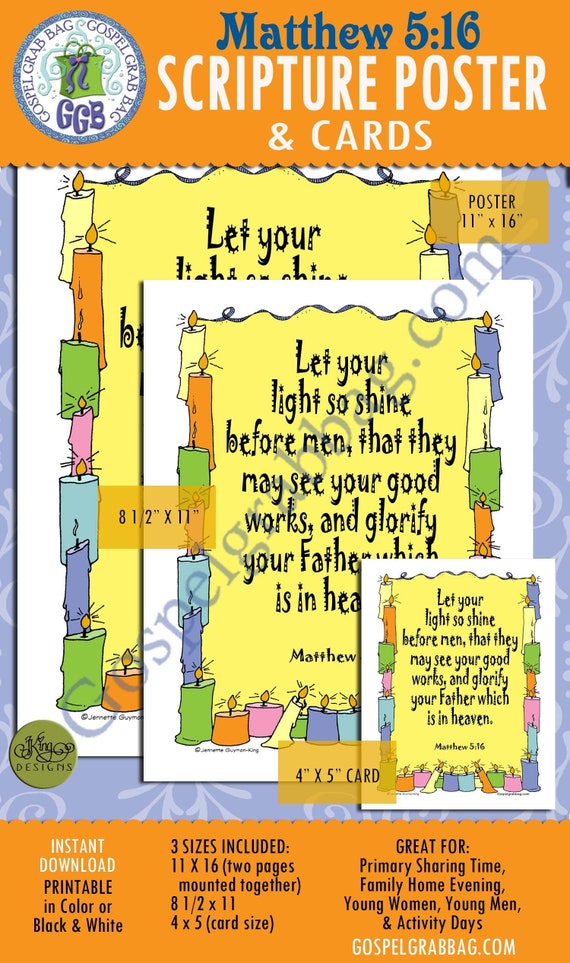 GOSPEL GRAB BAG GOSPEL GRAB BAG
GGB
Matthew 5:16
SCRIPTURE POSTER
& CARDS
POSTER
11" x 16"
Let your
light so shine
be
Let your
light so shine
before men, that they
may see your good
works, and glorify
your Father which
is in hea
Matthew 5
©Jennette Guymon-King
8 1/2" X 11"
Let your
light so shine
before men, that they
may see your good
works, and glorify
your Father which
is in heaven.
Matthew 5:16
Gospelgrabbag.com
4" X 5" CARD
©Jennette Guymon-King
Gospelgrabbag.com
JKing
DESIGNS
INSTANT
DOWNLOAD
PRINTABLE
in Color or
Black & White
3 SIZES INCLUDED:
11 X 16 (two pages
mounted together)
8 1/2 x 11
4 x 5 (card size)
GREAT FOR:
Primary Sharing Time,
Family Home Evening,
Young Women, Young Men,
& Activity Days
GOSPELGRABBAG.COM